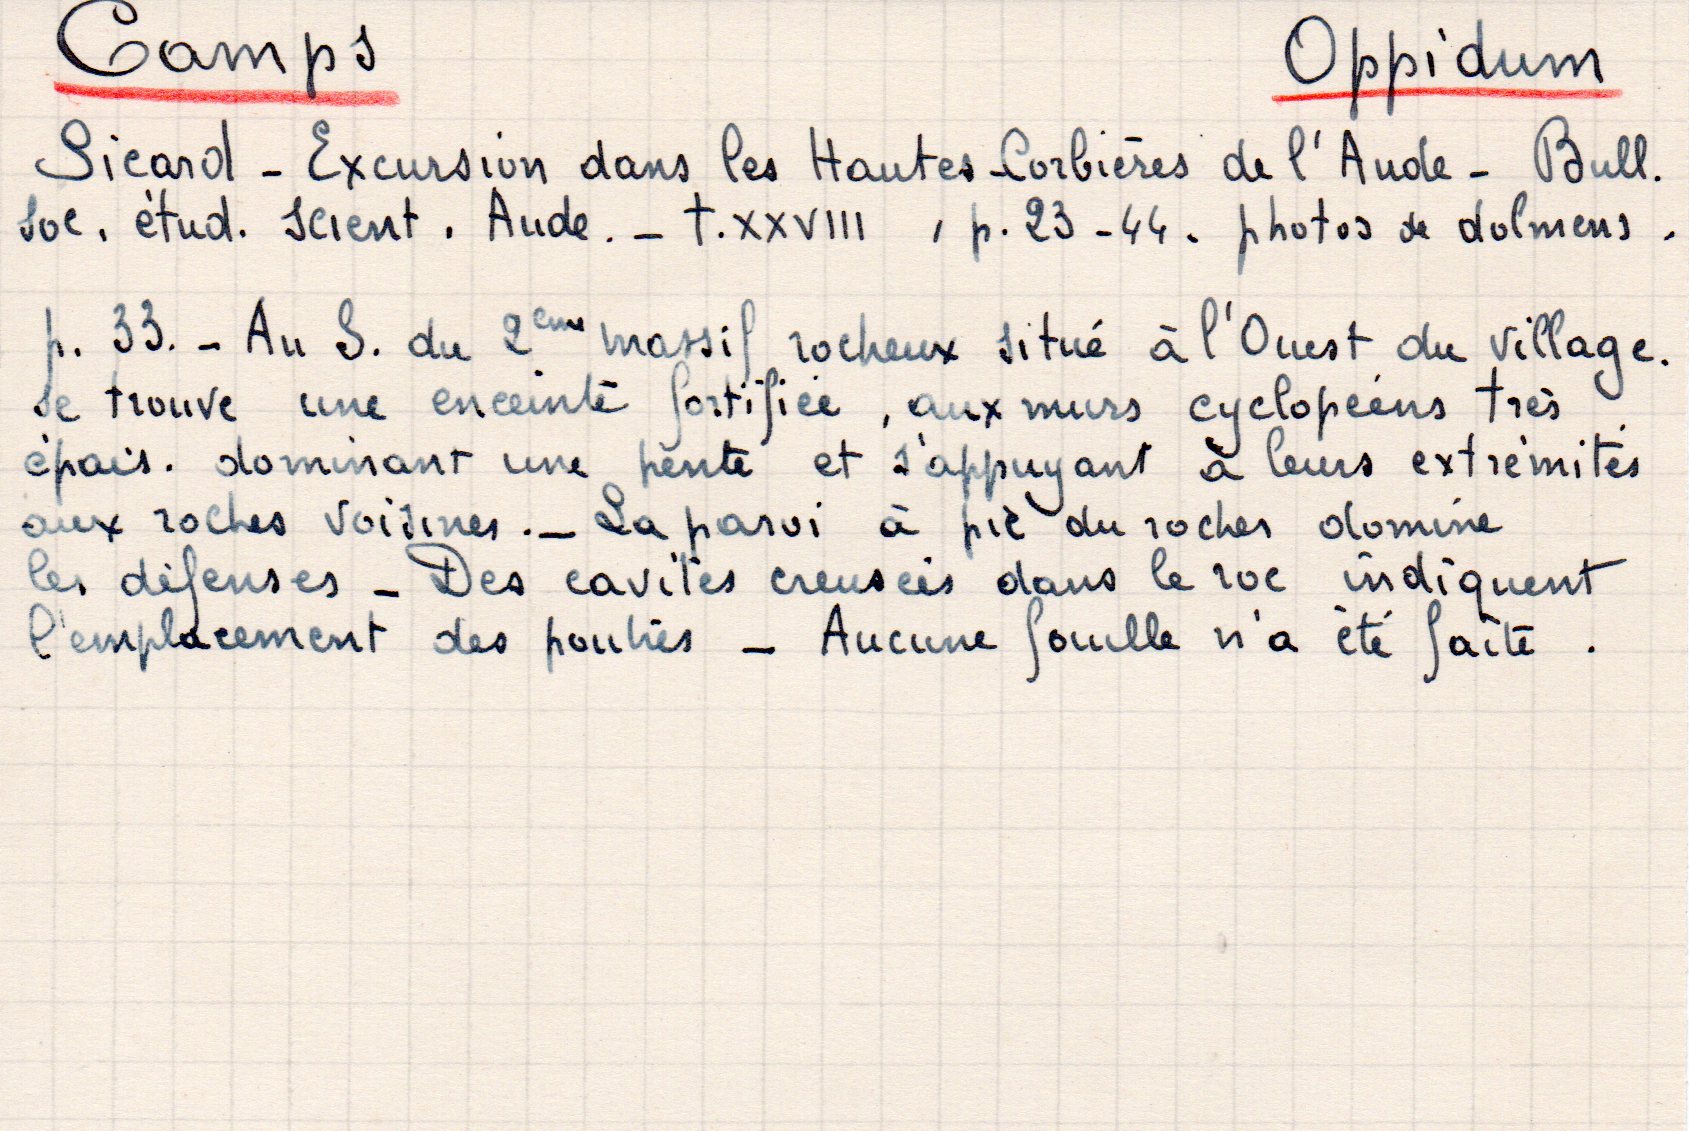 Camps Oppidum
Sicard - Excursion dans les Hautes-Corbières de l'Aude - Bull.
Soc. étud. Scient. Aude. - t. XXVIII, p. 23-44. photos de dolmens.
p. 33. - Au S. du 2eme massif rocheux situé à l'Ouest du village.
se trouve une enceinte fortifiée, aux murs cyclopéens très
épais. dominant une pente et s'appuyant à leurs extrémités
aux roches voisines. - La paroi à pic du rocher domine
les défenses - Des cavités creusées dans le roc indiquent
l'emplacement des poutres - Aucune fouille n'a été faite.